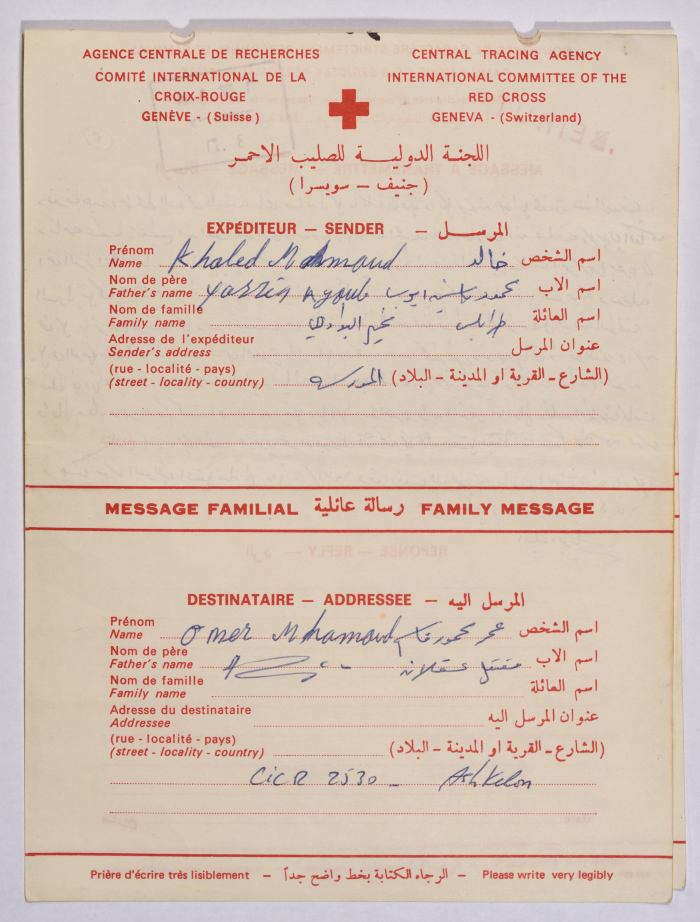 AGENCE CENTRALE DE RECHERCHES
COMITÉ INTERNATIONAL DE LA
CROIX-ROUGE
GENÈVE - (Suisse)
CENTRAL TRACING AGENCY
INTERNATIONAL COMMITTEE OF THE
RED CROSS
GENEVA - (Switzerland)
اللجنة الدولية للصليب الاحمر
(جنيف - سويسرا)
EXPÉDITEUR - SENDER - المرسل
Prénom
Name Khaled Mahmoud خالد اسم الشخص
Nom de père
Father's name yassin Ayoub محمود ياسين ايوب اسم الاب
Nom de famille
Family name طرابلس مخيم البداوي اسم العائلة
Adresse de l'expéditeur
Sender's address عنوان المرسل
(rue - localité - pays)
(street - locality - country) (الشارع - القرية او المدينة - البلاد)
MESSAGE FAMILIAL رسالة عائلية FAMILY MESSAGE
DESTINATAIRE - ADDRESSEE - المرسل اليه
Prénom
Name Omer Mhamoud عمر محمود قاسم اسم الشخص
Nom de père
Father's name معتقل عسقلان اسم الاب
Nom de famille
Family name اسم العائلة
Adresse du destinataire
Addressee عنوان المرسل اليه
(rue - localité - pays)
(street - locality - country) (الشارع - القرية او المدينة - البلاد)
CICR 2530 - Ashkelon
Prière d'écrire très lisiblement - الرجاء الكتابة بخط واضح جداً - Please write very legibly